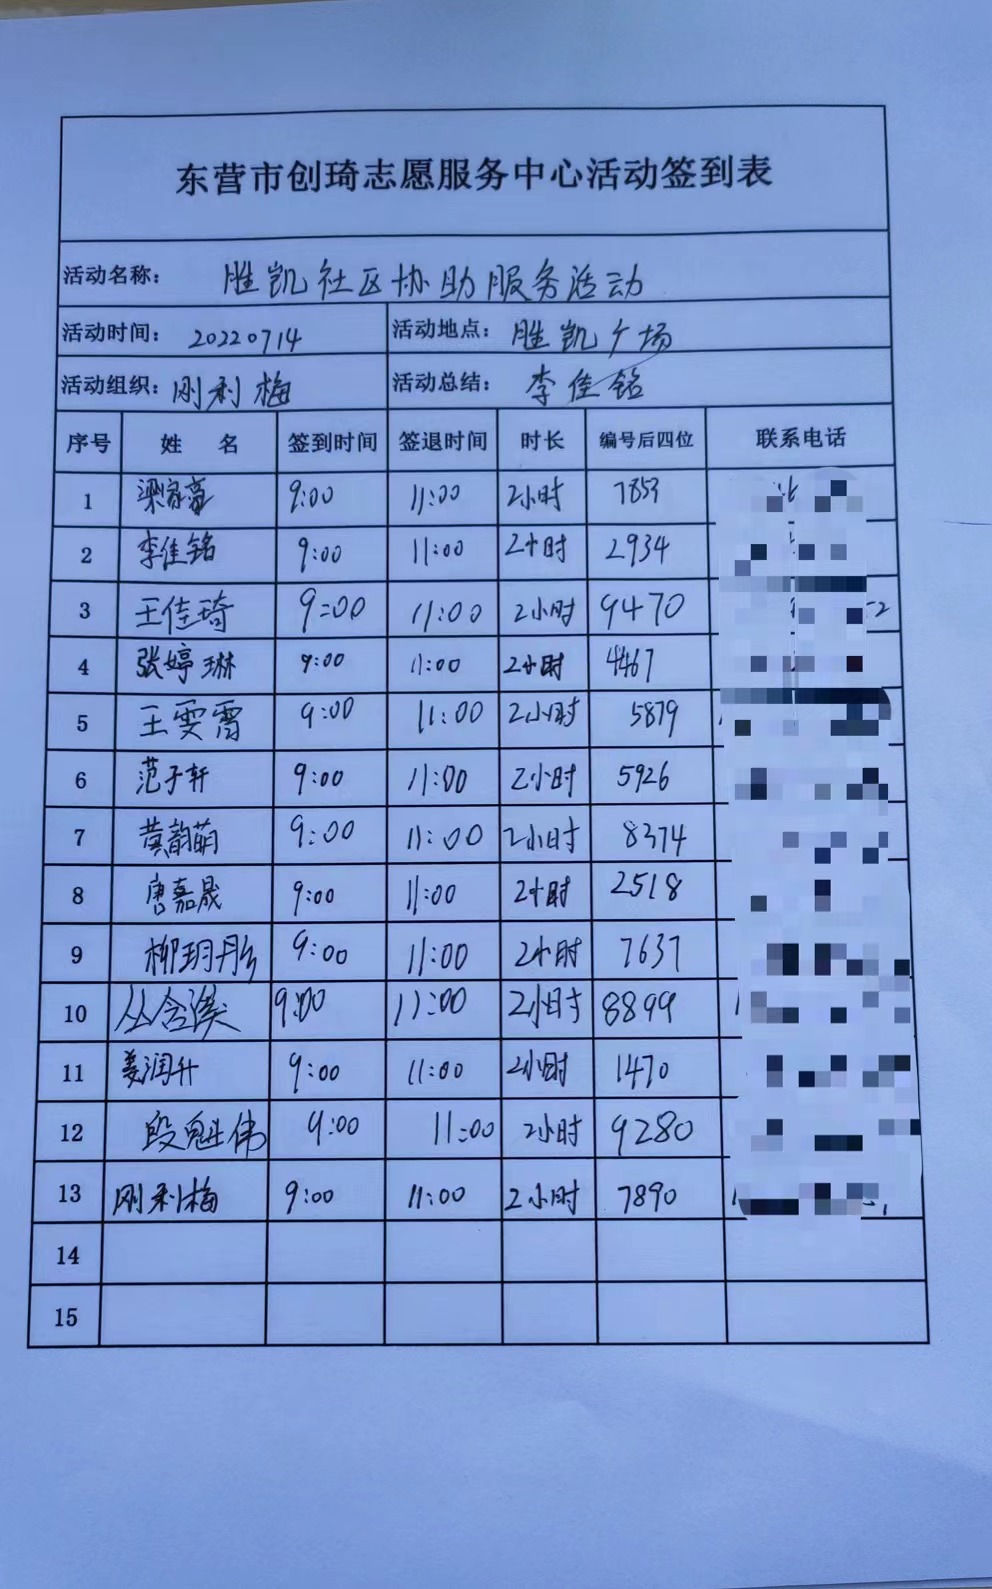 东营市创琦志愿服务中心活动签到表
活动名称: 胜凯社区协助服务活动
活动时间: 20220714 活动地点: 胜凯广场
活动组织: 刚利梅 活动总结: 李佳铭
序号 姓 名 签到时间 签退时间 时长 编号后四位 联系电话
1 梁家豪 9:00 11:00 2小时 7853
2 李佳铭 9:00 11:00 2小时 2934
3 王佳琦 9:00 11:00 2小时 9470
4 张婷琳 9:00 11:00 2小时 4467
5 王雯霄 9:00 11:00 2小时 5879
6 范子轩 9:00 11:00 2小时 5926
7 黄韵萌 9:00 11:00 2小时 8374
8 唐嘉晟 9:00 11:00 2小时 2518
9 柳玥彤 9:00 11:00 2小时 7637
10 丛含溪 9:00 11:00 2小时 8899
11 姜润升 9:00 11:00 2小时 1470
12 段魁伟 9:00 11:00 2小时 9280
13 刚利梅 9:00 11:00 2小时 7890
14
15